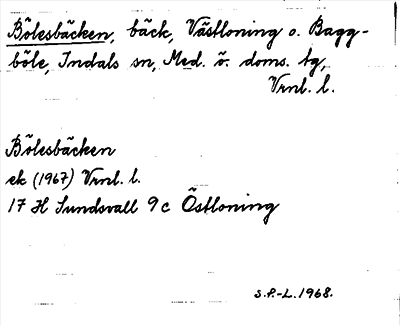 Bölesbäcken, bäck, Västloning o. Bagg-
böle, Indals sn, Med. ö. doms. tg,
Vrnl. l.
Bölesbäcken
ek (1967) Vrnl. l.
17 H Sundsvall 9 c Östloning
S.P.-L. 1968.